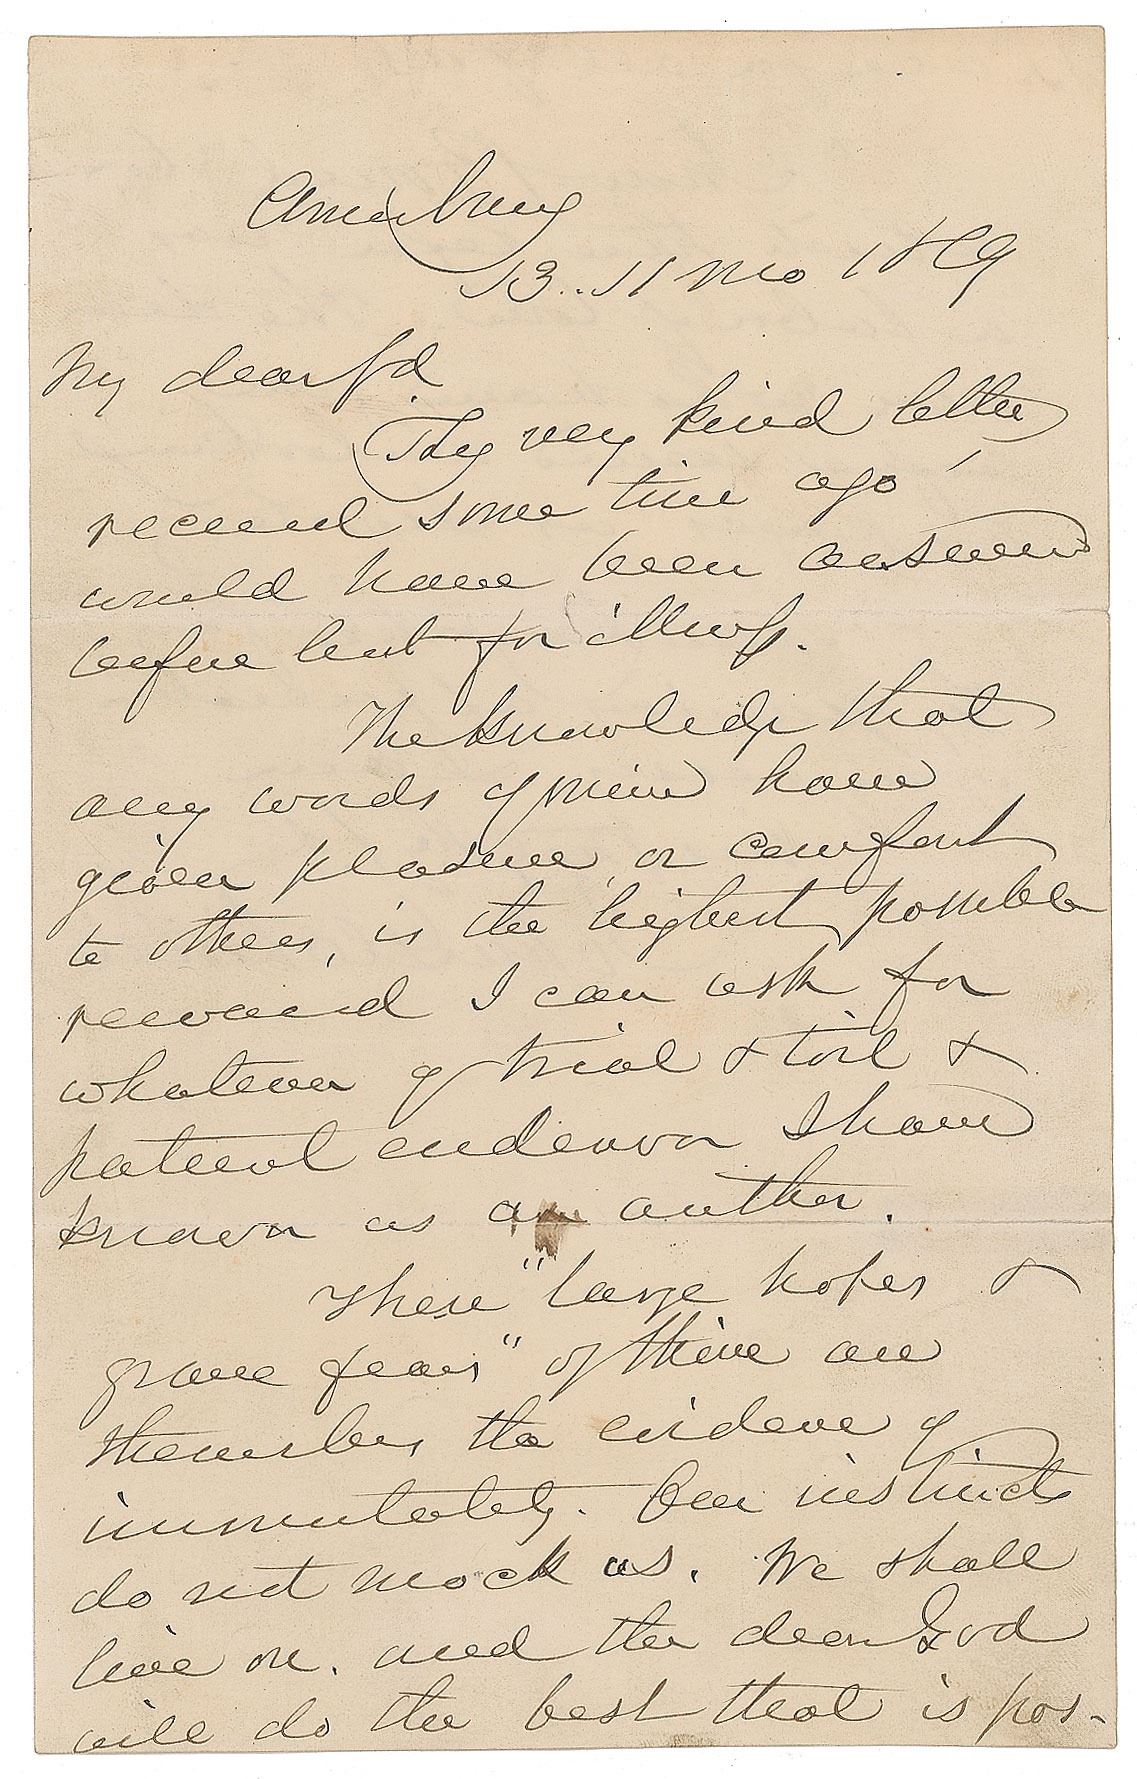 Amesbury
13. 11 mo 1869
My dear fd
Thy very kind letter
received some time ago
would have been answered
before but for illness.
The knowledge that
any words of mine have
given pleasure, or comfort
to others, is the highest possible
reward I can ask for
whatever of trial & toil &
patient endeavor I have
known as an author.
These "large hopes &
grave fears" of thine are
themselves the evidence of
immortality. Our instincts
do not mock us. We shall
live on. and the dear God
will do the best that is pos-